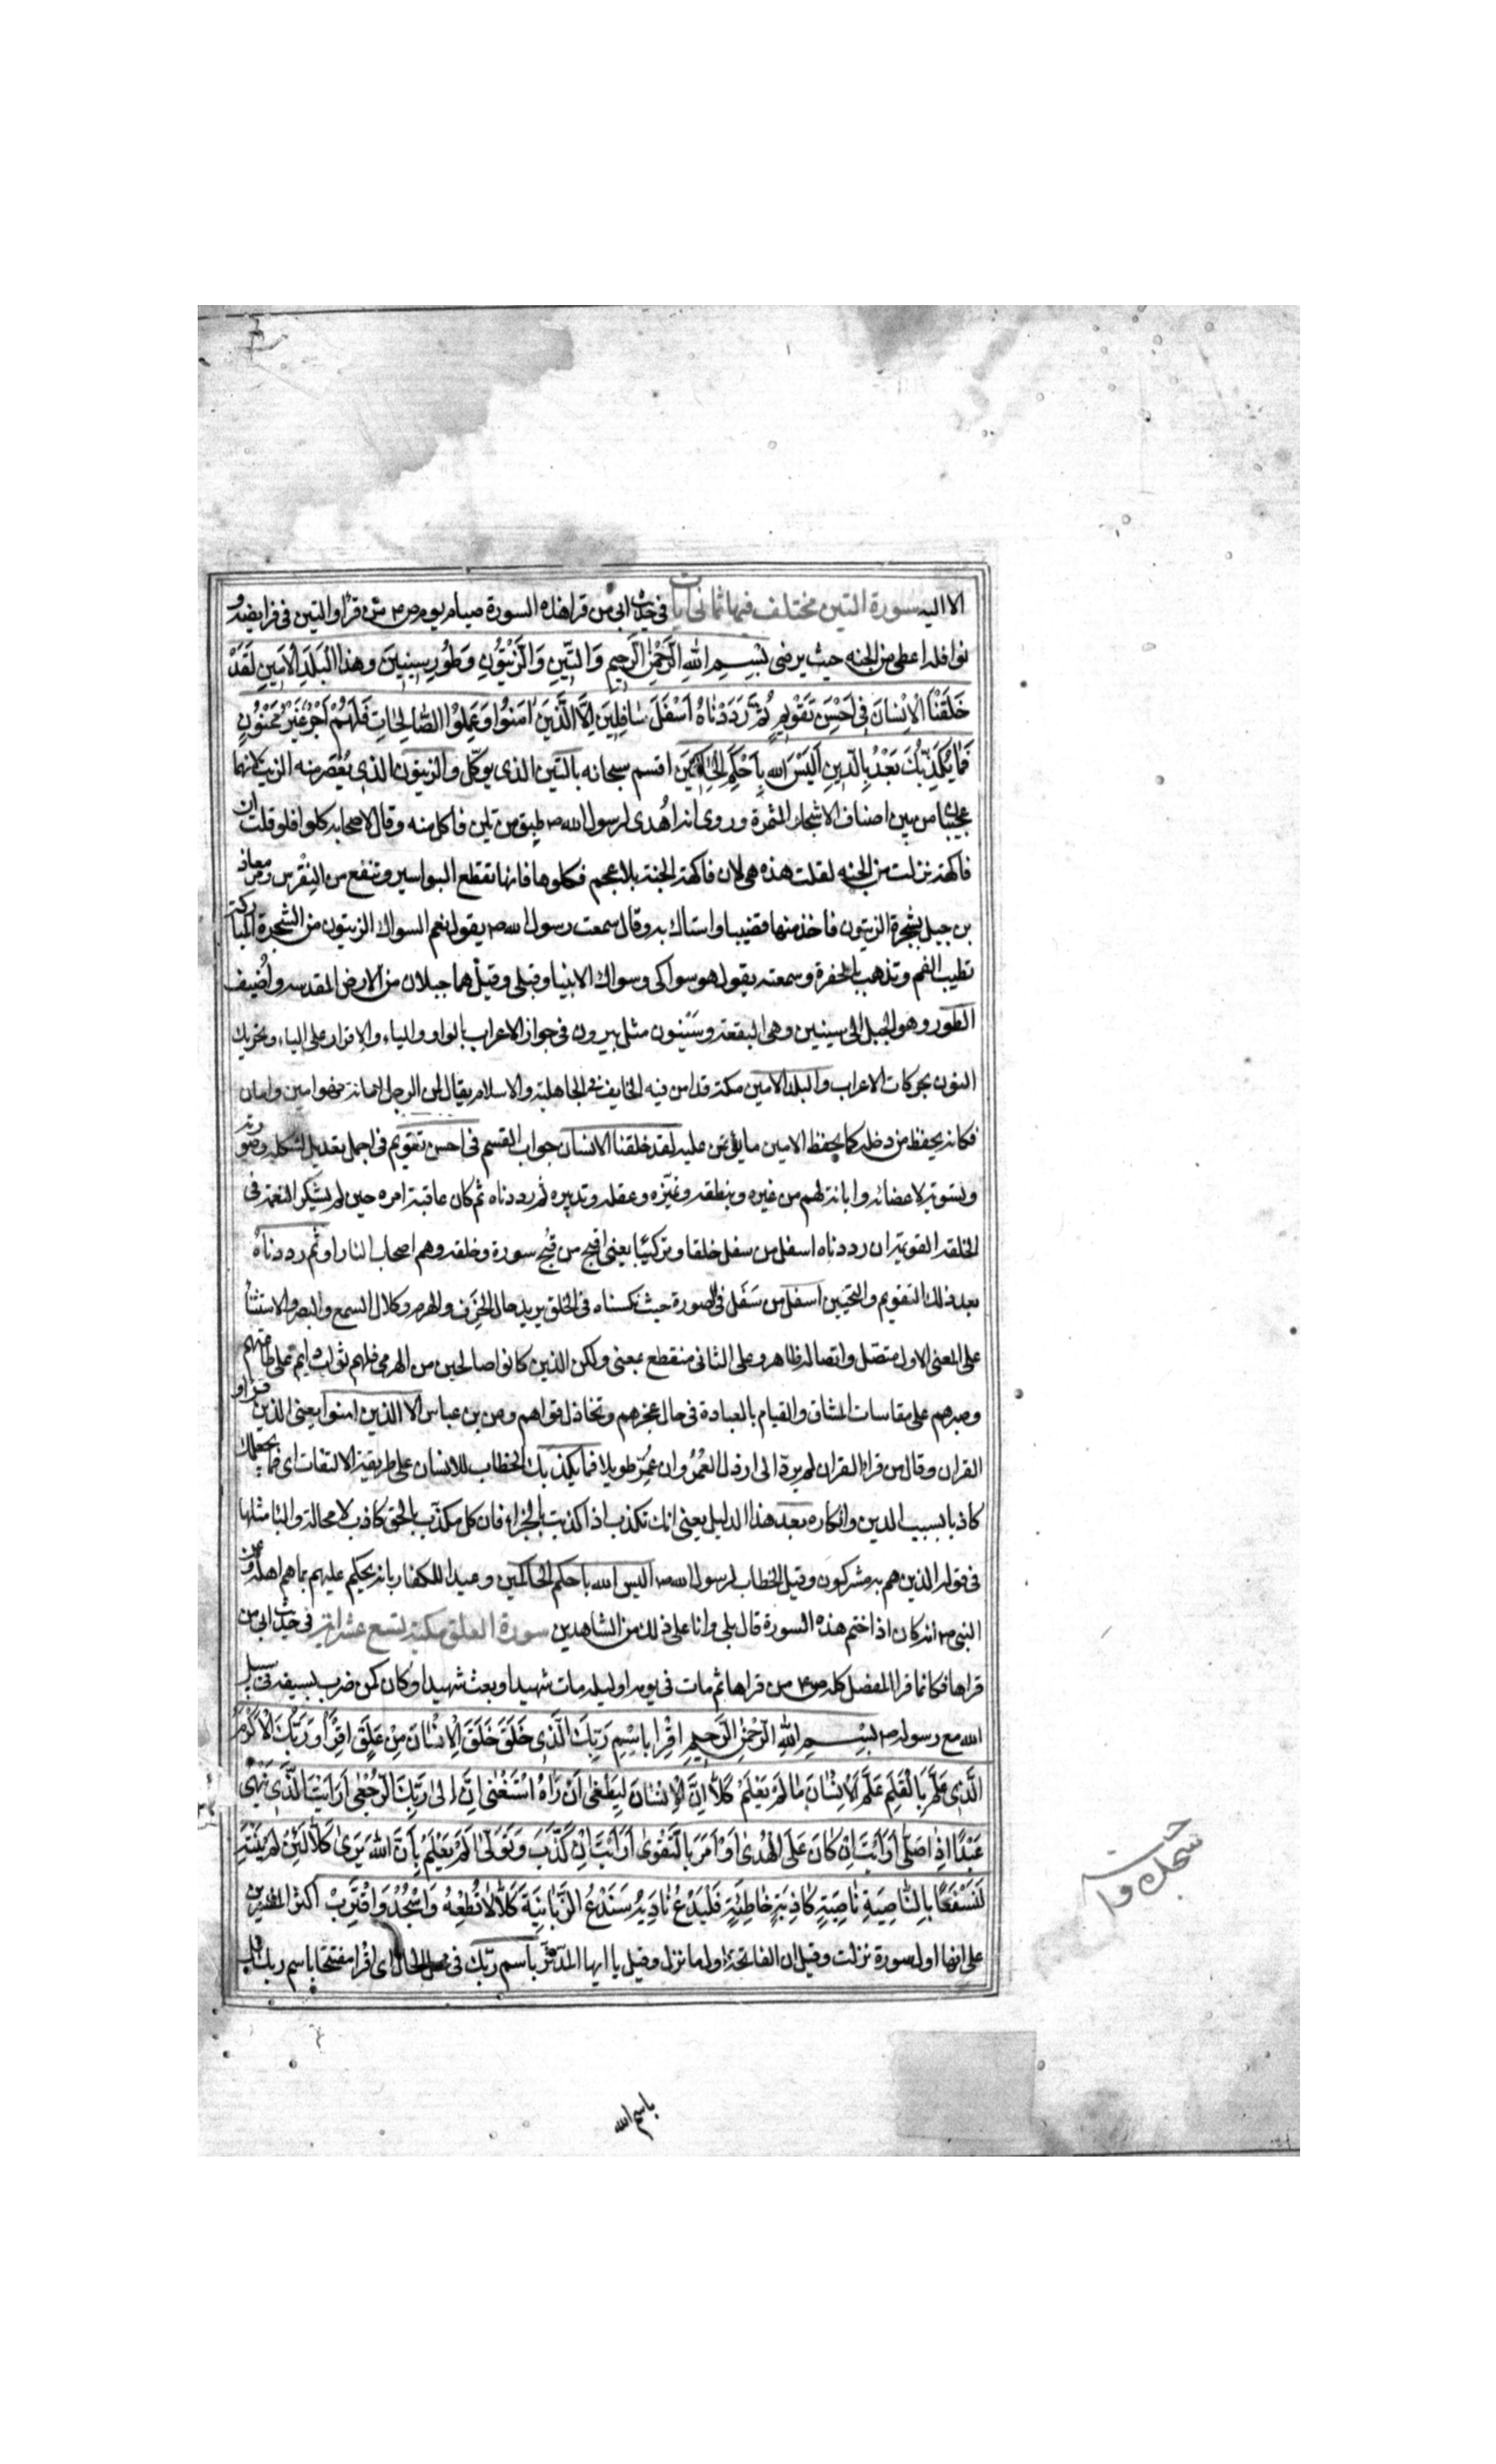 الا اليه سورة التين مختلف فيها ثماني آيات في حديث ابي من قرا هذه السورة صيام يوم ص م من قرأ والتين في فرايضه و
نوافله اعطى من الجنه حيث يرضى بِسْمِ اللهِ الرَّحْمٰنِ الرَّحِيمِ وَالتِّينِ وَالزَّيْتُونِ وَطُورِ سِينِينَ وَهٰذَا الْبَلَدِ الْاَمِينِ لَقَدْ
خَلَقْنَا الْاِنْسَانَ فِي اَحْسَنِ تَقْوِيمٍ ثُمَّ رَدَدْنَاهُ اَسْفَلَ سَافِلِينَ اِلَّا الَّذِينَ اٰمَنُوا وَعَمِلُوا الصَّالِحَاتِ فَلَهُمْ اَجْرٌ غَيْرُ مَمْنُونٍ
فَمَا يُكَذِّبُكَ بَعْدُ بِالدِّينِ اَلَيْسَ اللهُ بِاَحْكَمِ الْحَاكِمِينَ اقسم سبحانه بالتين الذي يوكل والزيتون الذي يُعْصَر منه الزيت لانهما
عجيبان من بين اصناف الاشجار المثمرة وروى انه اُهدى لرسول الله ص طبق من تين فاكل منه وقال لاصحابه كلوا فلو قلت ان
فاكهة نزلت من الجنه لقلت هذه هي لان فاكهة الجنة بلا عجم فكلوها فانها تقطع البواسير وتنفع من النِقْرس ومر معاذ
بن جبل بشجرة الزيتون فاخذ منها قضيبا واستاك به وقال سمعت رسول الله ص يقول نعم السواك الزيتون من الشجرة المباركة
تطيب الفم وتذهب بالحفرة وسمعته يقول هو سواكي وسواك الانبيا وقبلي وقيل هما جبلان من الارض المقدسه واُضيف
الطور وهو الجبل الى سينين وهي البقعة وسَيْنون مثل يبرون في جواز الاعراب بالواو والياء والاقرار على الياء وتحريك
النون بحركات الاعراب والبلد الامين مكة قد امن فيه الخايف في الجاهلية والاسلام يقال امن الرجل امانة فهو امين وامان
فكانه يحفظ من دخله كما يحفظ الامين ما يؤتمن عليه لقد خلقنا الانسان جواب القسم في احسن تقويم في اجمل تعديل لشكله وصورته
وتسوية لاعضائه وابانة لهم من غيره وبنطقه وتميّزه وعقله وتدبيره ثم رددناه ثم كان عاقبة امره حين لم يشكر النعمة في
الخلقه القويمة ان رددناه اسفل من سفل خلقا وتركيبًا يعنى اقبح من قبح سورة وخلقه وهم اصحاب النار او ثم رددناه
بعد ذلك التقويم والتحسين اسفل من سَفَل في الصورة حيث نكسناه في الخلق يريد حال الخَرَف والهرم وكلال السمع والبصر والاستثنا
على المعنى الاول متصل واتصاله ظاهر وعلى الثاني منقطع بمعنى ولكن الذين كانوا صالحين من الهرمى فلهم ثواب دايم على طاعتهم
وصبرهم على مقاسات المشاق والقيام بالعبادة في حال عجزهم وتخاذل قواهم وعن بن عباس الا الذين امنوا يعنى الذين قراو
القران وقال من قراء القران لم يردّ الى ارذل العُمُر وان عُمِّر طويلا فما يكذبك الخطاب للانسان على طريقة الالتفات اى فما يجعلك
كاذبا بسبب الدين وانكاره بعد هذا الدليل يعنى انك تكذب اذا كذبت بالجزاء فان كل مكذّب بالحق كاذب لا محالة والبا مثلها
في قوله الذين هم به مشركون وقيل الخطاب لرسول الله ص اليس الله باحكم الحاكمين وعيد للكفار بانه يحكم عليهم بما هم اهله وعن
النبي ص انه كان اذا ختم هذه السورة قال بلى وانا على ذلك من الشاهدين سورة العلق مكية تسع عشر اية في حديث ابي من
قراها فكانما قرا المفصل كله ص م من قراها ثم مات في يومه او ليله مات شهيدا وبعث شهيدا وكان كمن ضرب بسيفه في سبيل
الله مع رسوله ص بِسْمِ اللهِ الرَّحْمٰنِ الرَّحِيمِ اِقْرَا بِاسْمِ رَبِّكَ الَّذِي خَلَقَ خَلَقَ الْاِنْسَانَ مِنْ عَلَقٍ اِقْرَأْ وَرَبُّكَ الْاَكْرَمُ
الَّذِي عَلَّمَ بِالْقَلَمِ عَلَّمَ الْاِنْسَانَ مَا لَمْ يَعْلَمْ كَلَّا اِنَّ الْاِنْسَانَ لَيَطْغٰى اَنْ رَاٰهُ اسْتَغْنٰى اِنَّ اِلٰى رَبِّكَ الرُّجْعٰى اَرَاَيْتَ الَّذِي يَنْهٰى
عَبْدًا اِذَا صَلّٰى اَرَاَيْتَ اِنْ كَانَ عَلَى الْهُدٰى اَوْ اَمَرَ بِالتَّقْوٰى اَرَاَيْتَ اِنْ كَذَّبَ وَتَوَلّٰى اَلَمْ يَعْلَمْ بِاَنَّ اللهَ يَرٰى كَلَّا لَئِنْ لَمْ يَنْتَهِ
لَنَسْفَعًا بِالنَّاصِيَةِ نَاصِيَةٍ كَاذِبَةٍ خَاطِئَةٍ فَلْيَدْعُ نَادِيَهُ سَنَدْعُ الزَّبَانِيَةَ كَلَّا لَا تُطِعْهُ وَاسْجُدْ وَاقْتَرِبْ اكثر المفسرين
على انها اول سورة نزلت وقيل ان الفاتحة اول ما نزل وقيل يا ايها المدّثّر باسم ربّك في محل الحال اى اقرا مفتتحا باسم ربك قل
باسم الله